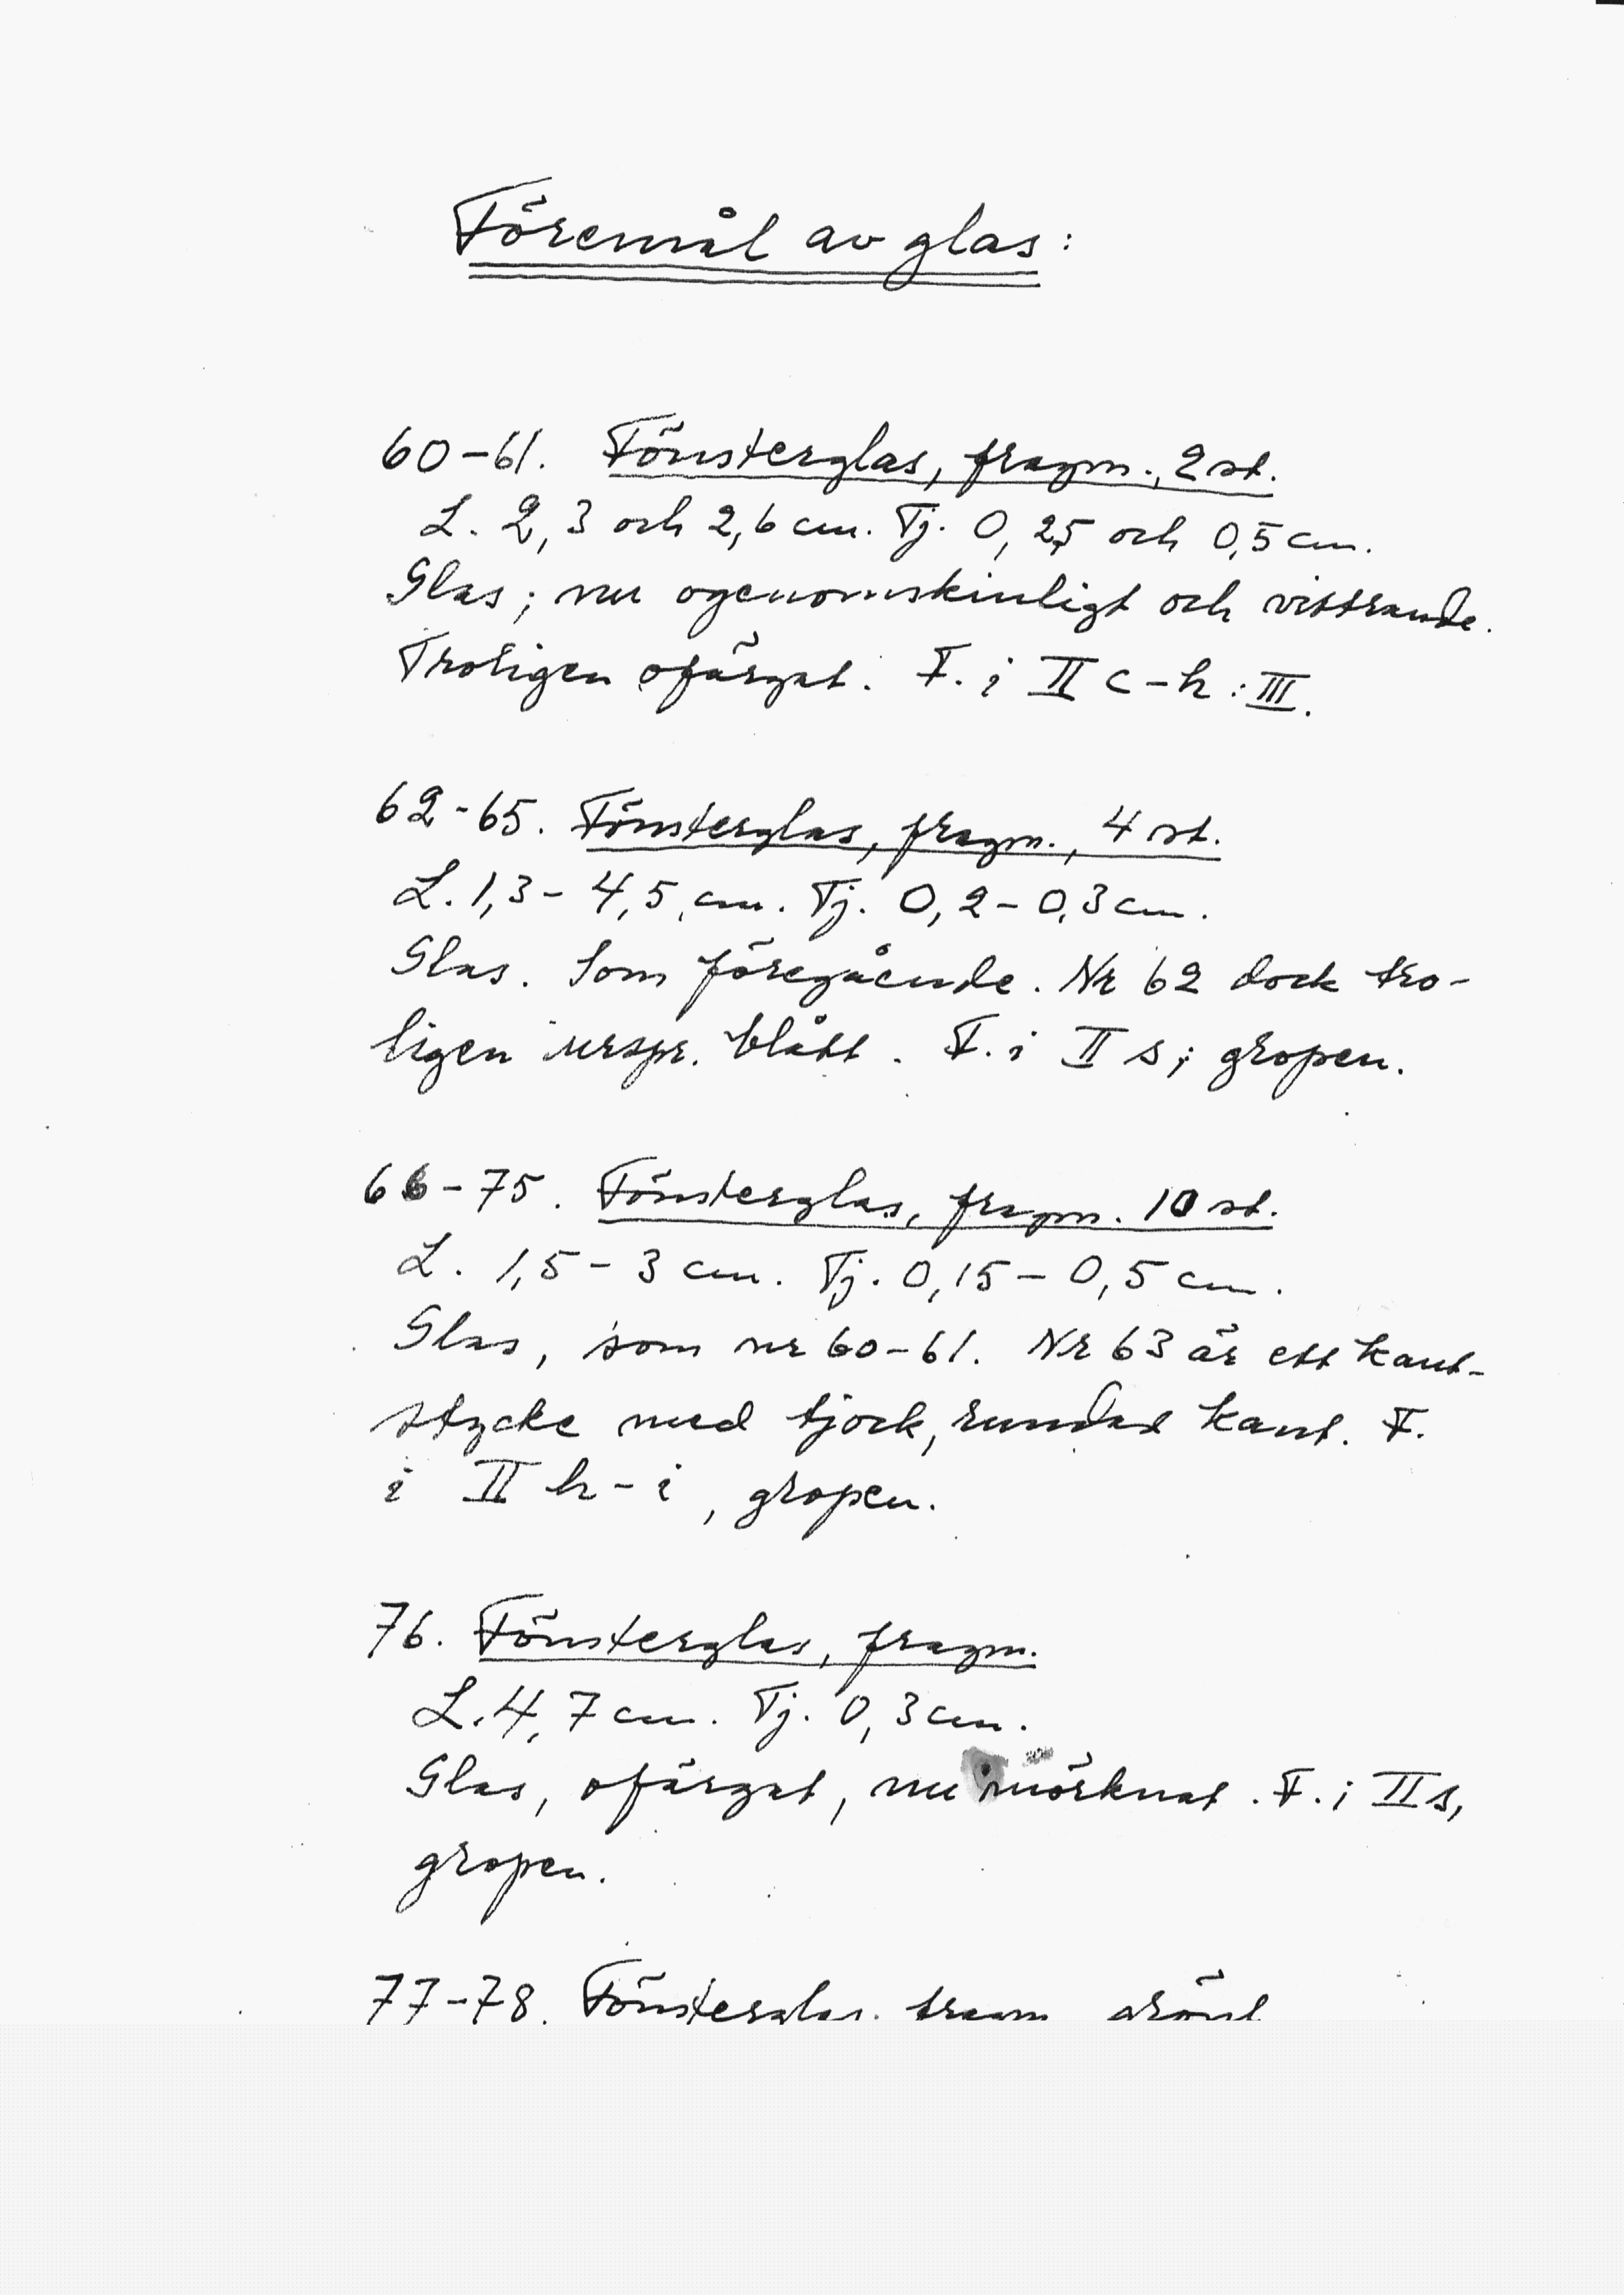 Föremål av glas:
60-61. Fönsterglas, fragm., 2 st.
L. 2,3 och 2,6 cm. Tj. 0,25 och 0,5 cm.
Glas; nu ogenomskinligt och vittrande.
Troligen ofärgat. F. i II c-h:III.
62-65. Fönsterglas, fragm., 4 st.
L. 1,3- 4,5 cm. Tj. 0,2-0,3 cm.
Glas. Som föregående. Nr 62 dock tro-
ligen urspr. blått. F. i II s; gropen.
66-75. Fönsterglas, fragm. 10 st.
L. 1,5-3 cm. Tj. 0,15-0,5 cm.
Glas, som nr 60-61. Nr 63 är ett kant-
stycke med tjock, rundad kant. F.
i II h-i, gropen.
76. Fönsterglas, fragm.
L. 4,7 cm. Tj. 0,3 cm.
Glas, ofärgat, nu mörknat. F. i II s,
gropen.
77-78. Fönsterglas, fragm. grönt